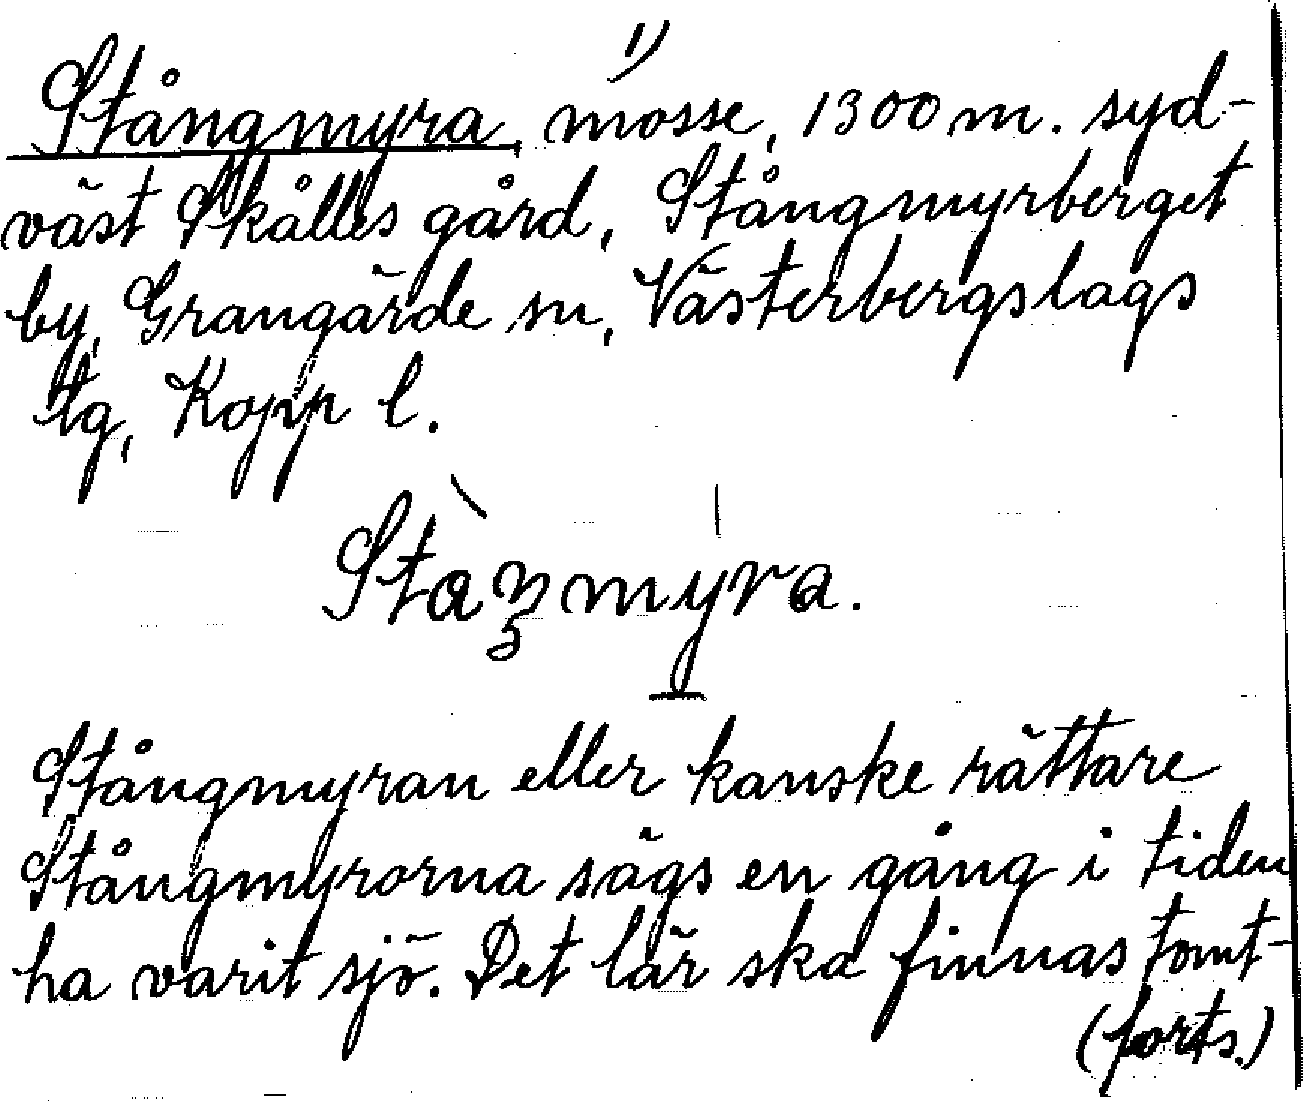 1)
Stångmyra, mosse, 1300 m. syd-
väst Skålles gård, Stångmyrberget
by, Grangärde sn, Västerbergslags
tg, Kopp l.
Stàŋmyra.
Stångmyran eller kanske rättare
Stångmyrorna sägs en gång i tiden
ha varit sjö. Det lär ska finnas tomt-
(forts.)